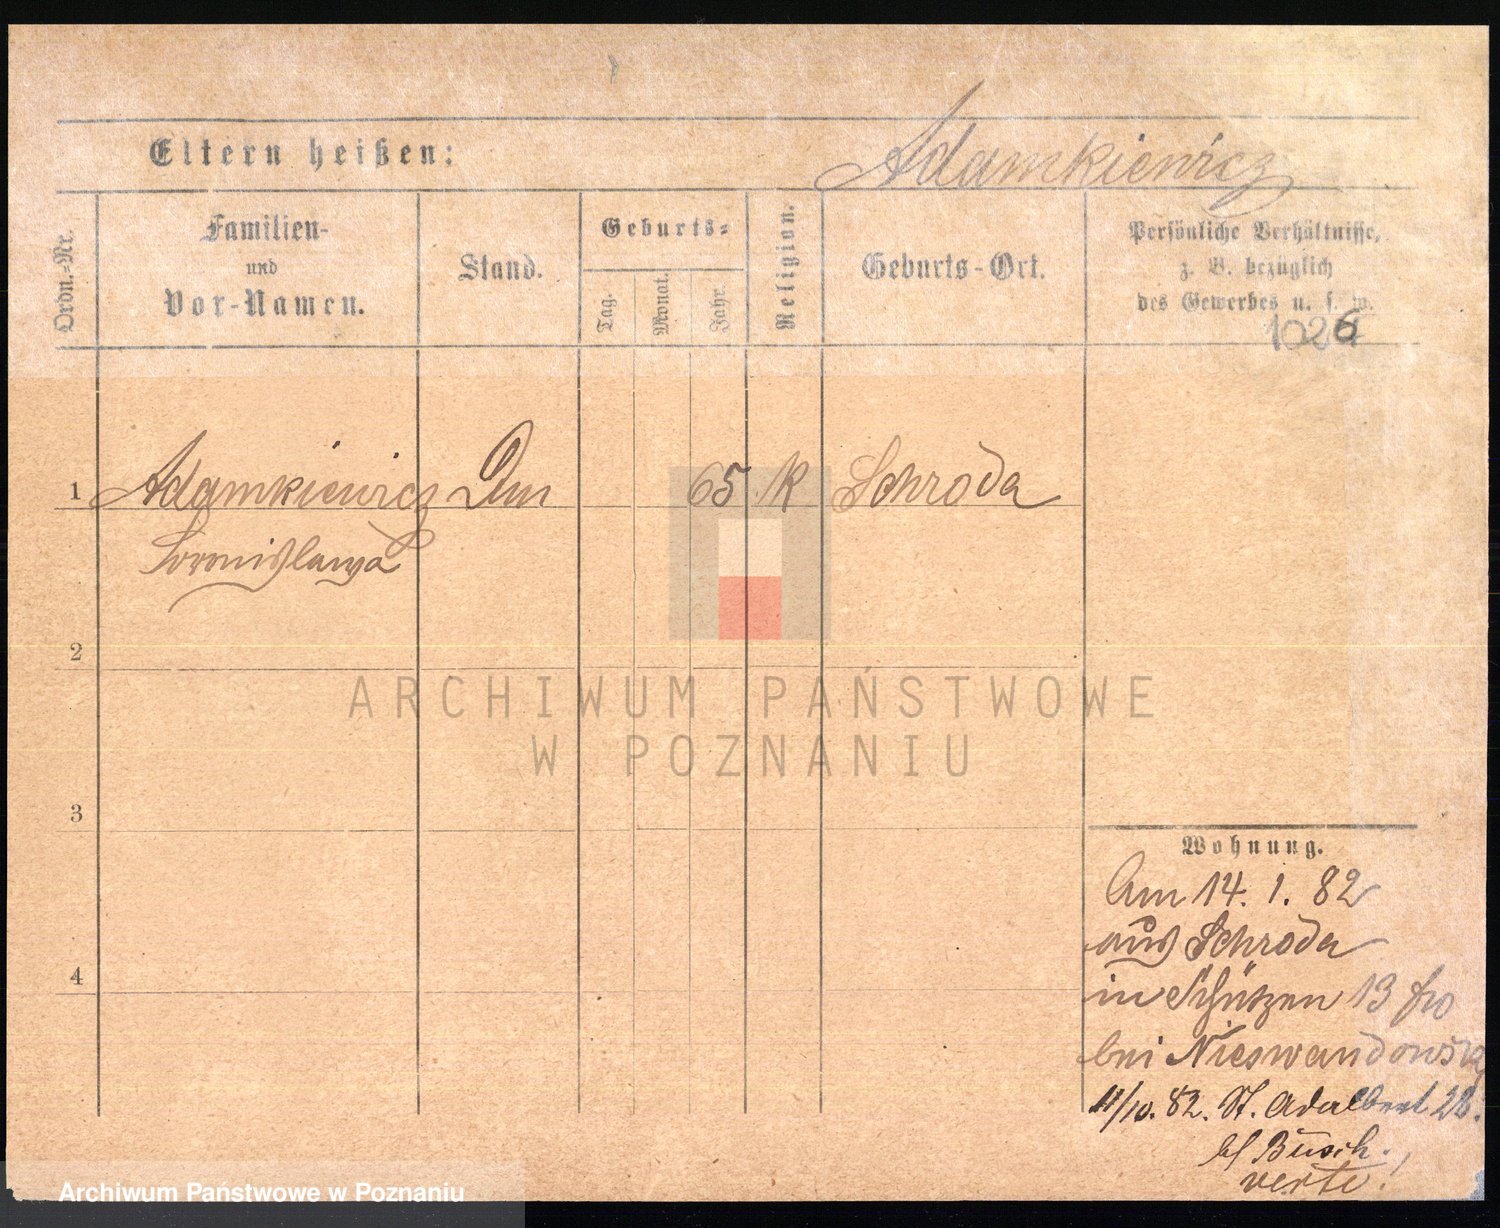 Eltern heißen:
Adamkiewicz
Ordn.-Nr.
Familien-
und
Vor-Namen.
Stand.
Geburts-
Tag.
Monat.
Jahr.
Religion.
Geburts-Ort.
Persönliche Verhältnisse,
z. B. bezüglich
des Gewerbes u. s. w.
1026
1 Adamkiewicz 65 K Schroda
2
ARCHIWUM PAŃSTWOWE
W POZNANIU
3
4
Wohnung.
Am 14. 1. 82
aus Schroda
in Schützen 13
bei Nieswandowska
11/10. 82. St. Adalbert 28.
bei Busch.
verte!
Archiwum Państwowe w Poznaniu